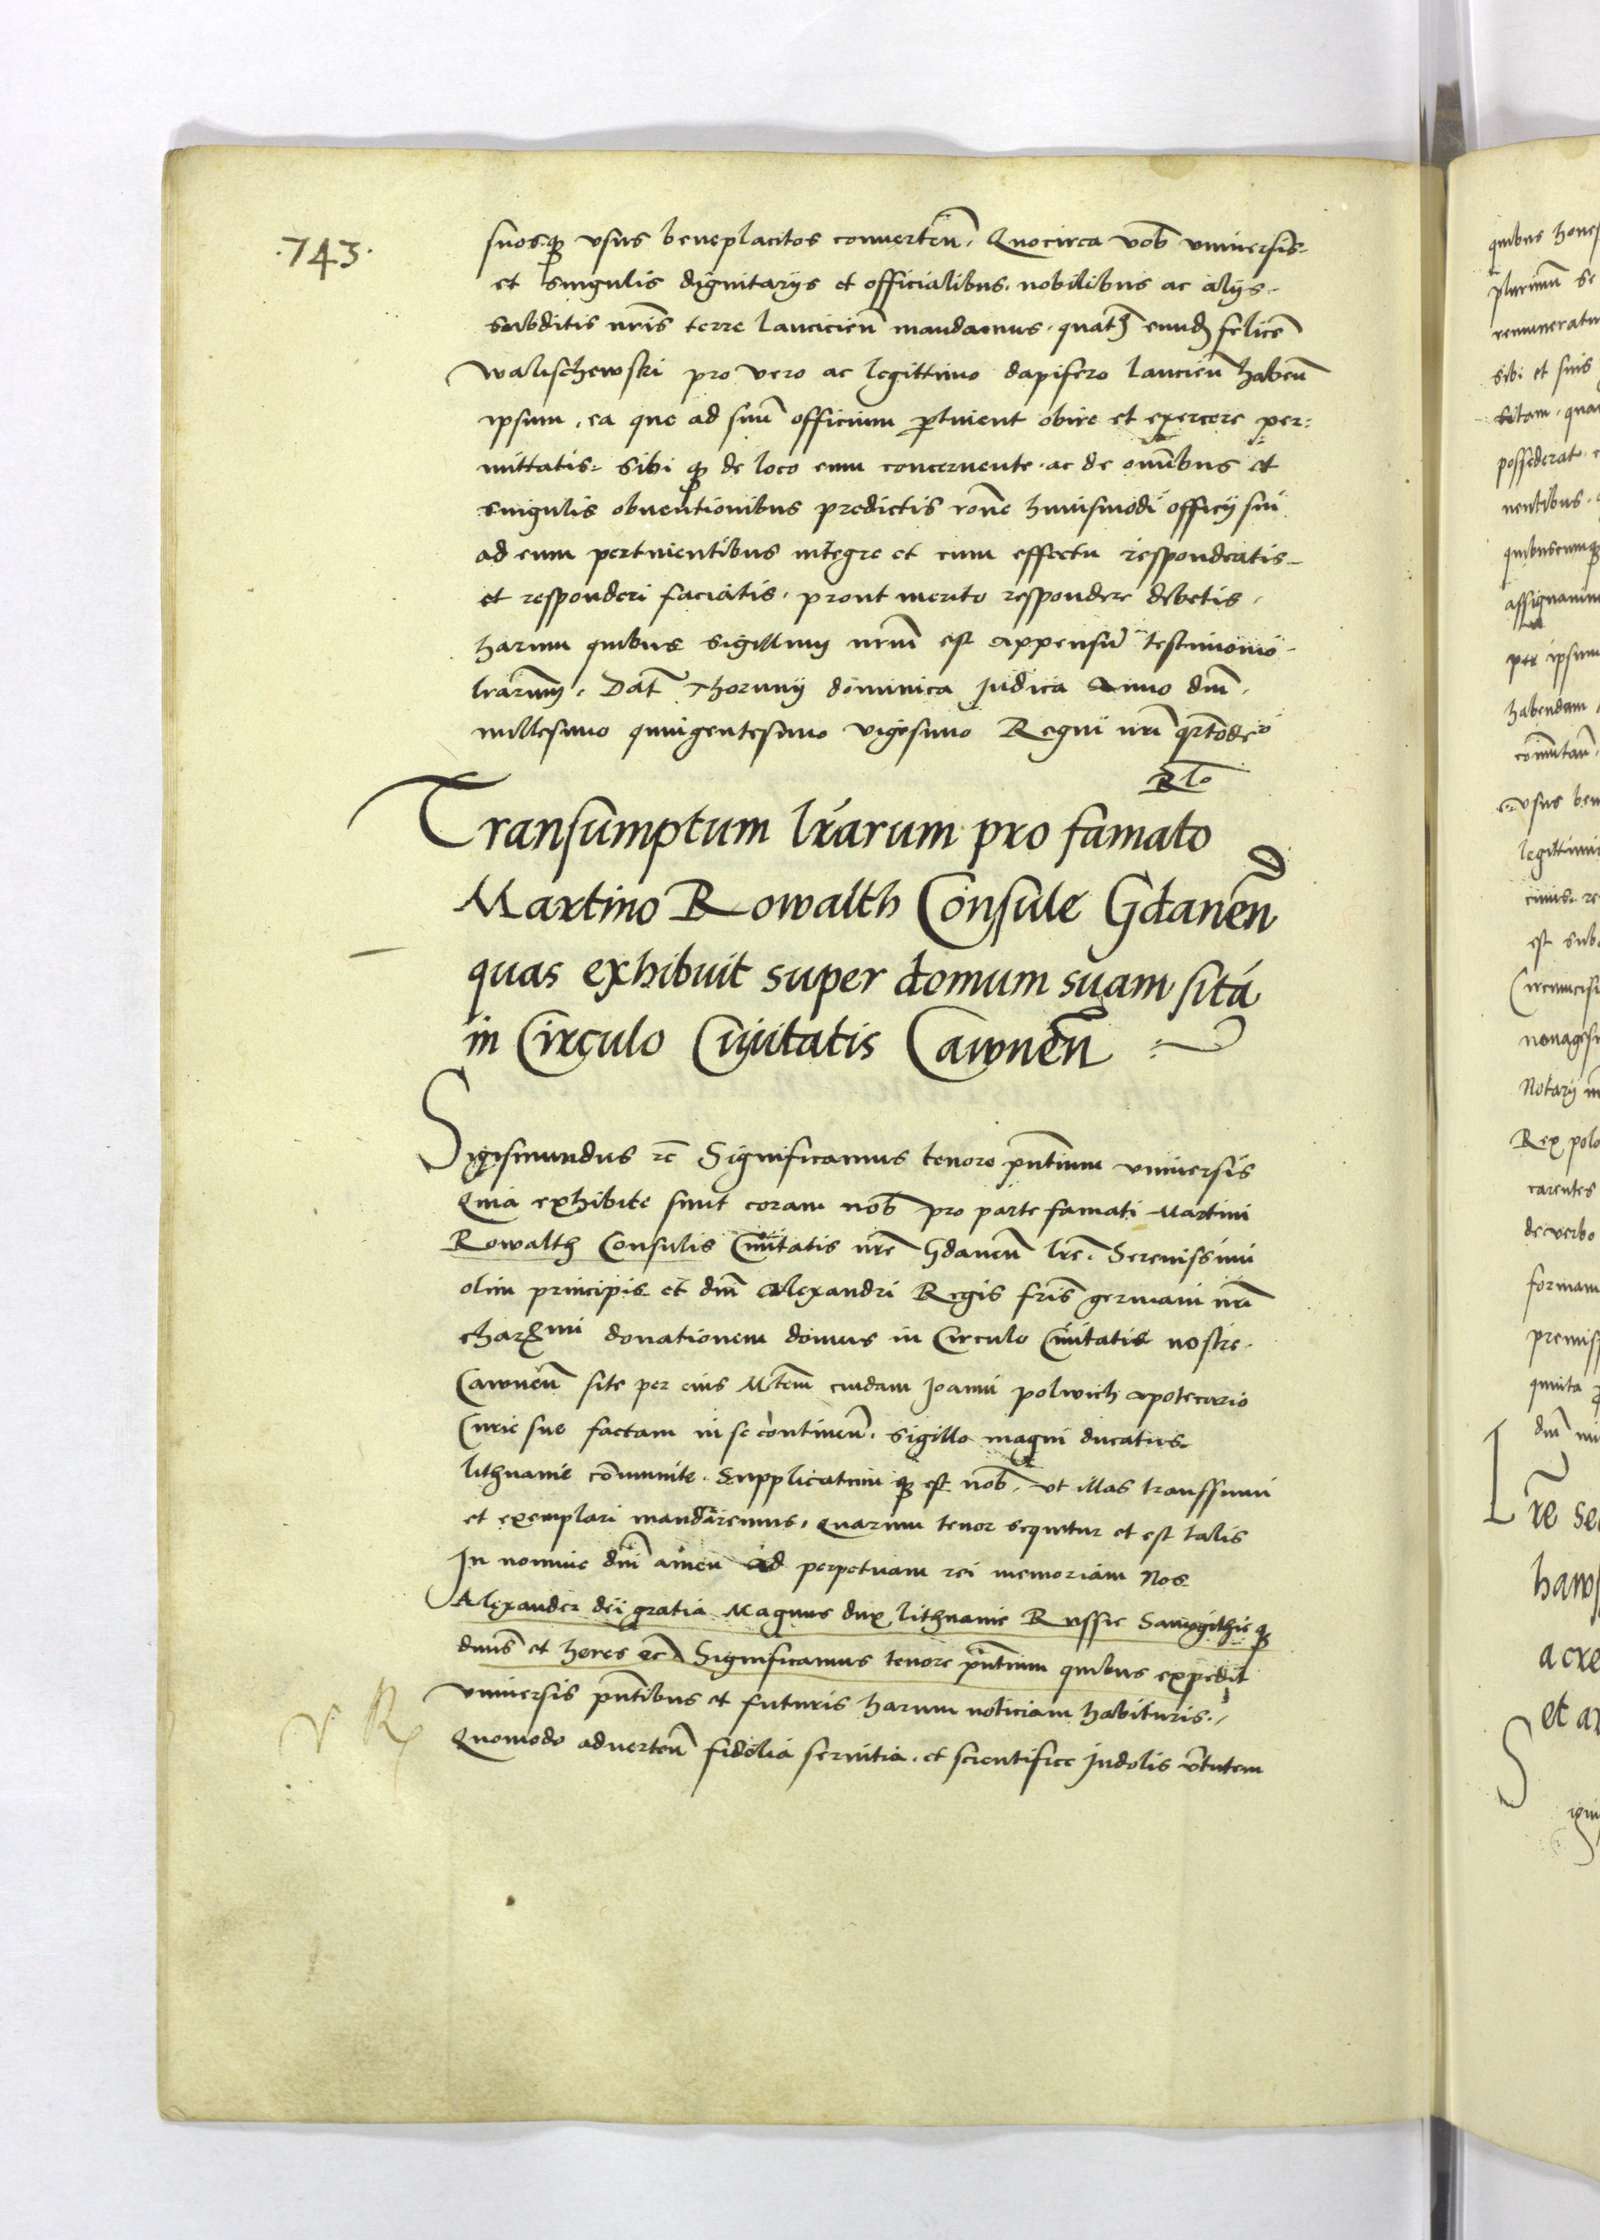 .743.
suosq3 vsus beneplacitos conuerteñ. Quocirca vob̃ vniuersis
et singulis dignitarijs et officialibus. nobilibus ac alijs.
subditis nr̃is terre Lancicieñ mandamus. quatꝫ eundꝫ felicẽ
Walischewski pro vero ac legittimo dapifero Lancieñ habeñ
ipsum, ea que ad suũ officium ꝑtinent obire et exercere per:
mittatis. sibi q3 de loco eum concernente. ac de om̃ibus et
singulis obuentionibus predictis rõne huiusmodi officij sui
ad eum pertinentibus integre et cum effectu respondeatis
et responderi faciatis. prout merito respondere debetis.
harum quibus sigillum nrũm est appensũ testimonio
lrarum. Dat̃ Thorunij dominica Judica Anno dñi.
millesimo quingentesimo vigesimo Regni nr̃i qrtodeo
Rlo
Transumptum lr̃arum pro famato
Martino Rowalth Consule Gdaneñ
quas exhibuit super domum suam sitã
in Circulo Ciuitatis Cawneñ
Sigismundus rc̃ Significamus tenore pñtium vniuersis
Quia exhibite sunt coram nob̃ pro parte famati Martini
Rowalth Consulis Ciuitatis nr̃e Gdaneñ lr̃e. Serenissimi
olim principis et dñi Alexandri Regis fr̃is germani nr̃i
charꝫmi donationem domus in Circulo Ciuitatis nostre.
Cawneñ site per eius Mtem̃ cuidam Joanni polwich apotecario
Curie sue factam in se contineñ. sigillo magni ducatus
lithuanie cõmunite. Supplicatum q3 est nob̃. vt illas transsumi
et exemplari mandaremus. Quarum tenor sequitur et est talis
In nomine dñi amen Ad perpetuam rei memoriam Nos
Alexander dei gratia Magnus dux lithuanie Russie Samogithie q3
dñus et heres ec̃ Significamus tenore pñtium quibus expedit
vniuersis pñtibus et futuris harum noticiam habituris.
Quomodo aduerteñ fidelia seruitia. et scientifice Judolis vtutem
v R
quibus hones
plurimũ se
remuneratu
sibi et suis
possederat
nentibus.
quibuscumq3
assignamu
per ipsum
habendam
vsus ben
legittimi
est sub
Circumcisi
nonagesi
Notarij
Rex polo
carentes
de verbo
formam
premiss
quinta
dñi
Lr̃e se
haws
acre
et ar